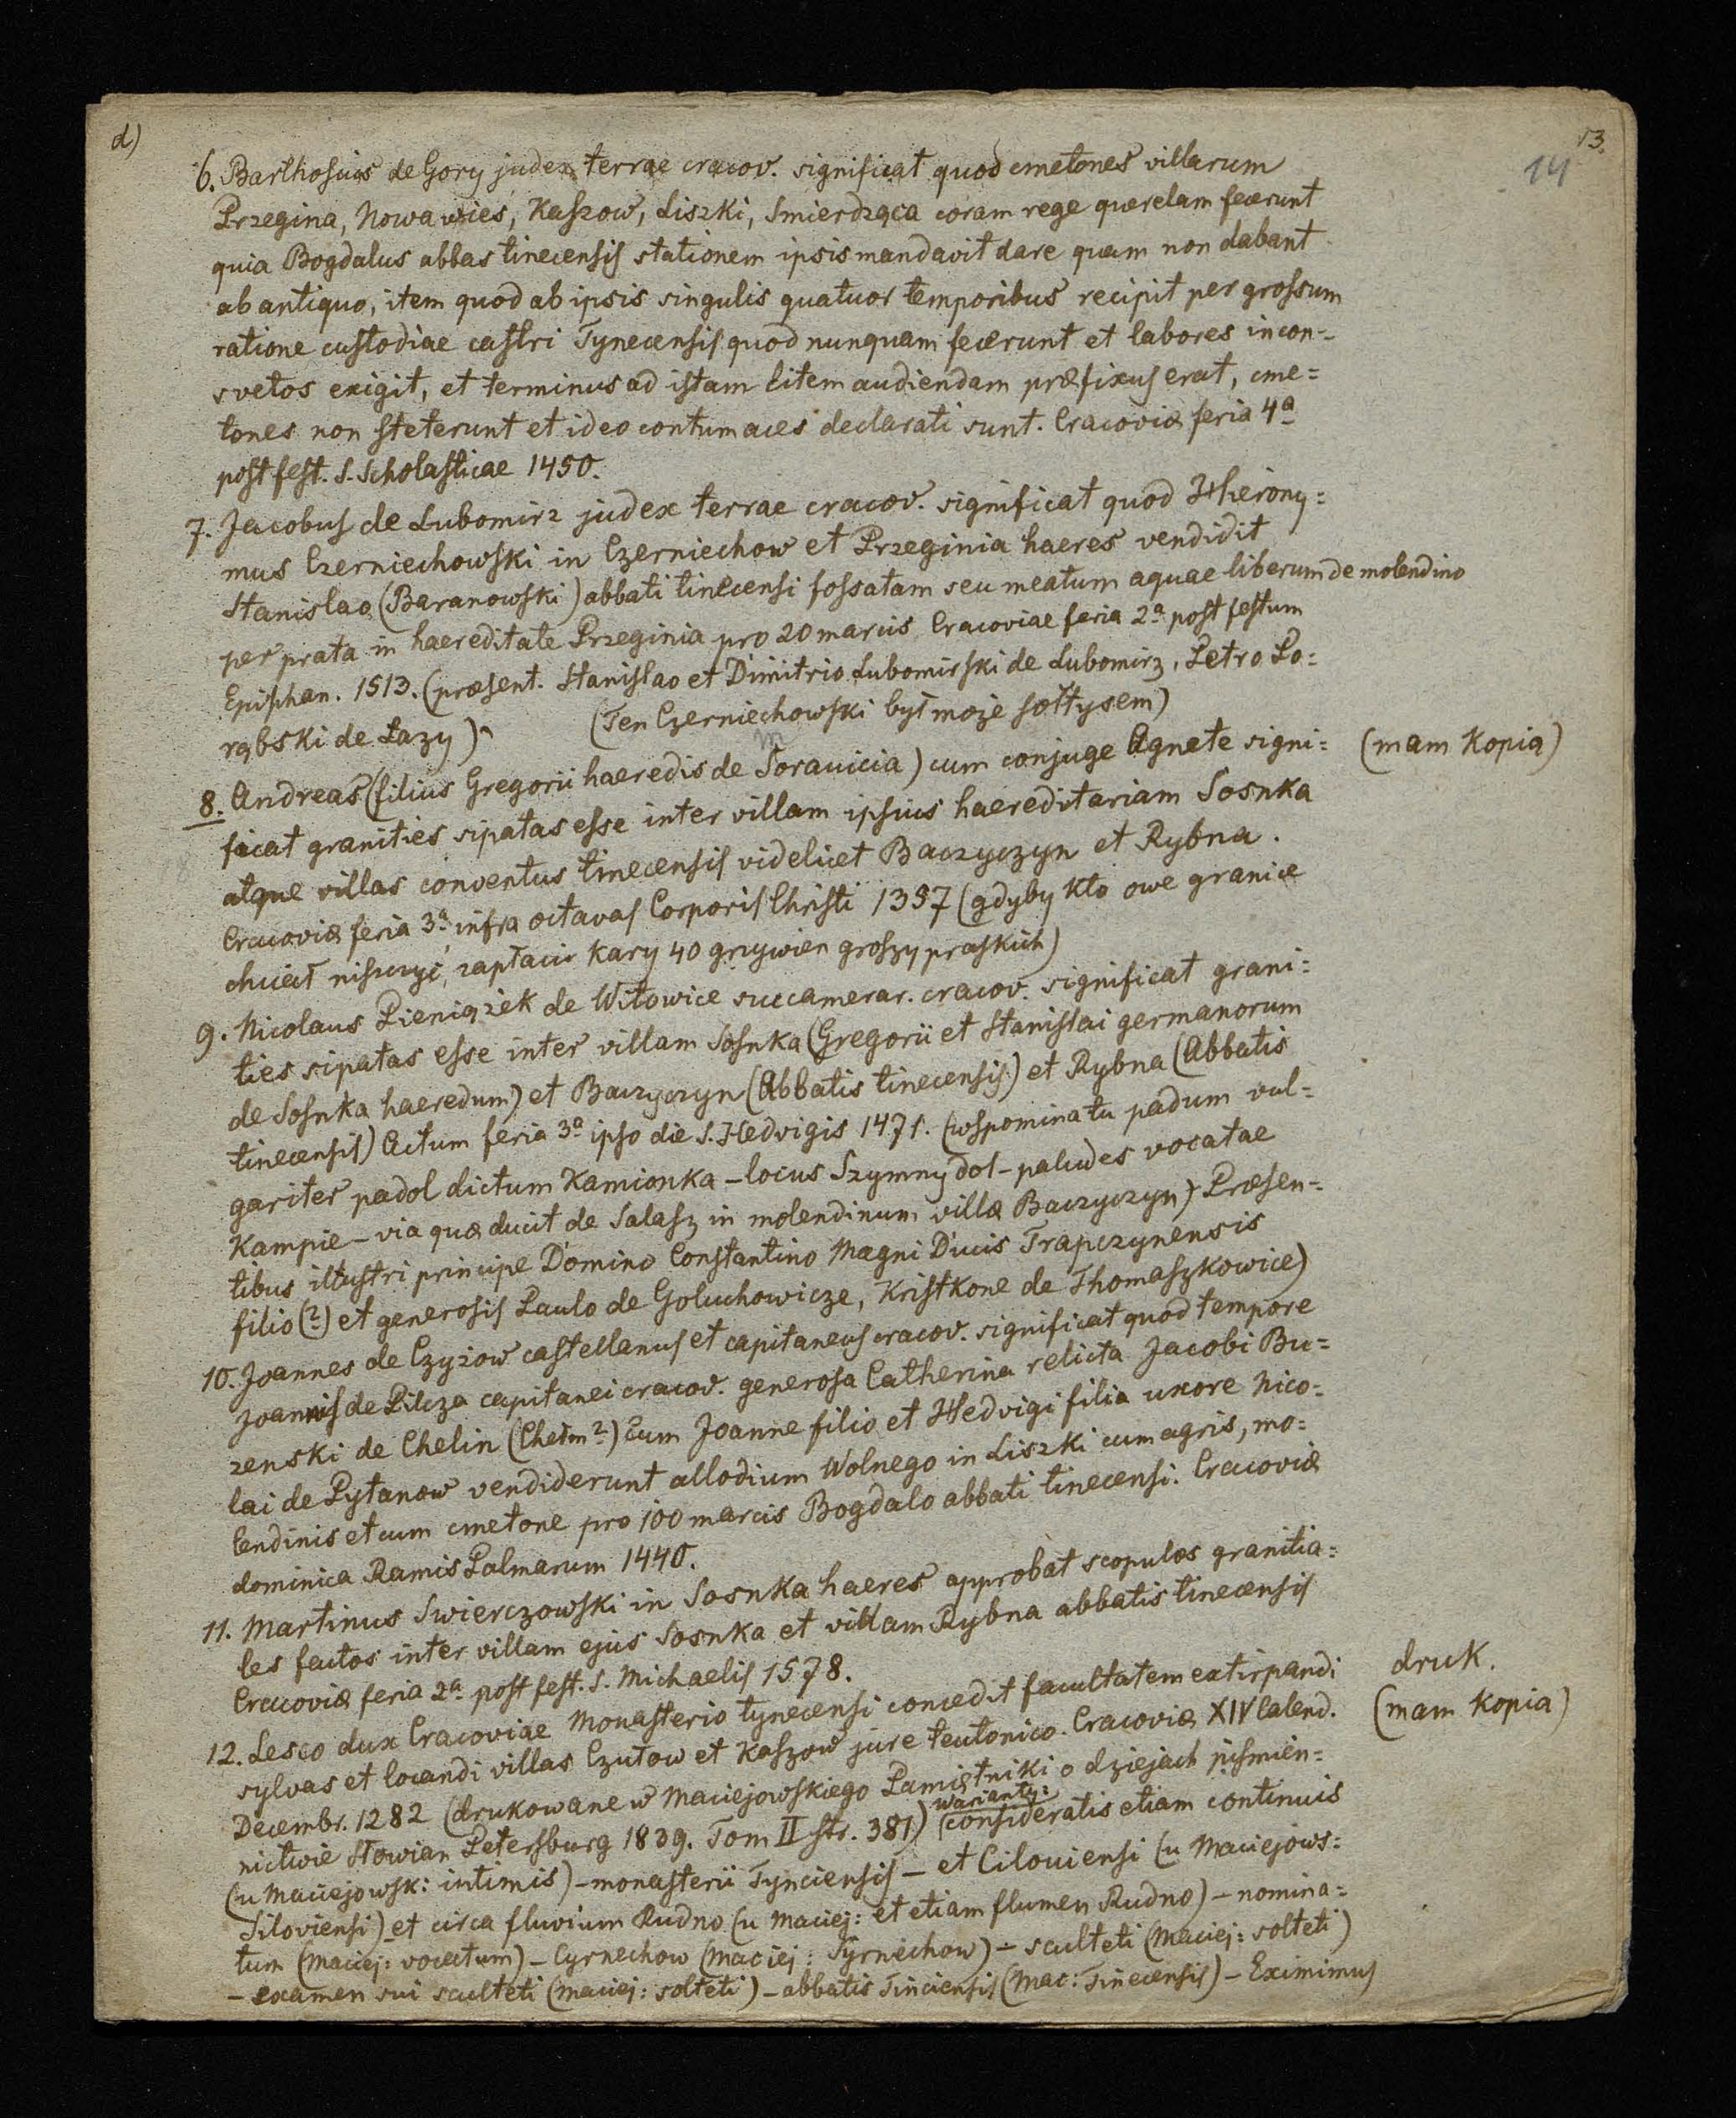 d)
13.
14
6. Barthosius de Gory judex terrae cracov. significat quod cmetones villarum
Przegina, Nowawies, Kaszow, Liszki, Smierdząca coram rege querelam fecerunt
quia Bogdalus abbas tinecensis stationem ipsis mandavit dare quam non dabant
ab antiquo, item quod ab ipsis singulis quatuor temporibus recipit per grossum
ratione custodiae castri Tynecensis quod nunquam fecerunt et labores incon-
svetos exigit, et terminus ad istam litem audiendam præfixus erat, cme=
tones non steterunt et ideo contumaces declarati sunt. Cracoviæ feria 4a
post fest. S. Scholasticae 1450.
7. Jacobus de Lubomirz judex terrae cracov. significat quod Hierony=
mus Czerniechowski in Czerniechow et Przeginia haeres vendidit
Stanislao (Baranowski) abbati tinecensi fossatam seu meatum aquae liberum de molendino
per prata in haereditate Przeginia pro 20 marcis Cracoviae feria 2a post festum
Epiphan. 1513. (præsent. Stanislao et Dimitrio Lubomirski de Lubomirz, Petro Po=
rąbski de Łazy)
(Ten Czerniechowski był może sołtysem)
8. Andreas (filius Gregorii haeredis de Soravicia) cum conjuge Agnete signi= (mam kopią)
m
ficat granities sipatas esse inter villam ipsius haereditariam Sosnka
atque villas conventus tinecensis videlicet Baczyczyn et Rybna.
Cracoviæ feria 3a infra octavas Corporis Christi 1357 (gdyby kto owe granice
chciał niszczyć, zapłacić kary 40 grzywien groszy praskich)
9. Nicolaus Pieniążek de Witowice succamerar. cracov. significat grani=
ties sipatas esse inter villam Sosnka (Gregorii et Stanislai germanorum
de Sosnka haeredum) et Baczyczyn (Abbatis tinecensis) et Rybna (Abbatis
tinecensis) Actum feria 3a ipso die S. Hedvigis 1471. (wspomina tu padum vul-
gariter padol dictum Kamionka – locus Szymny dol – paludes vocatae
Kampie – via quæ ducit de Salasz in molendinum villæ Baczyczyn) Præsen-
tibus illustri principe Domino Constantino Magni Ducis Trapczynensis
filio (?) et generosis Paulo de Goluchowicze, Kristkone de Thomaszkowice)
10. Joannes de Czyżow castellanus et capitaneus cracov. significat quod tempore
Joannis de Pilcza capitanei cracov. generosa Catherina relicta Jacobi Bu=
zenski de Chelin (Chełm?) cum Joanne filio et Hedvigi filia uxore Nico=
lai de Pytanow vendiderunt allodium Wolnego in Liszki cum agris, mo=
lendinis et cum cmetone pro 100 marcis Bogdalo abbati tinecensi. Cracoviæ
dominica Ramis Palmarum 1440.
11. Martinus Swierczowski in Sosnka haeres approbat scopulos granitia=
les factos inter villam ejus Sosnka et villam Rybna abbatis tinecensis
Cracoviæ feria 2a post fest. S. Michaelis 1578.
12. Lesco dux Cracoviae Monasterio tynecensi concedit facultatem extirpandi druk.
sylvas et locandi villas Czułow et Kaszow jure teutonico. Cracoviæ XIV Calend. (mam kopią)
Decembr. 1282 (drukowane w Maciejowskiego Pamiętniki o dziejach piśmien=
nictwie Słowian Petersburg 1839. Tom II str. 381) warianty: (consideratis etiam continuis
(u Maciejowsk: intimis) – monasterii Tynciensis – etCiloviensi (u Maciejows=
Siloviensi) et circa fluvium Rudno (u Maciej: et etiam flumen Rudno) – nomina=
tum (Maciej: vocatum) – Cyrnechow (Maciej: Syrnechow) – sculteti (Maciej: solteti)
– examen sui sculteti (Maciej: solteti) – abbatis Tinciensis (Mac: Tinecensis) – Eximimus